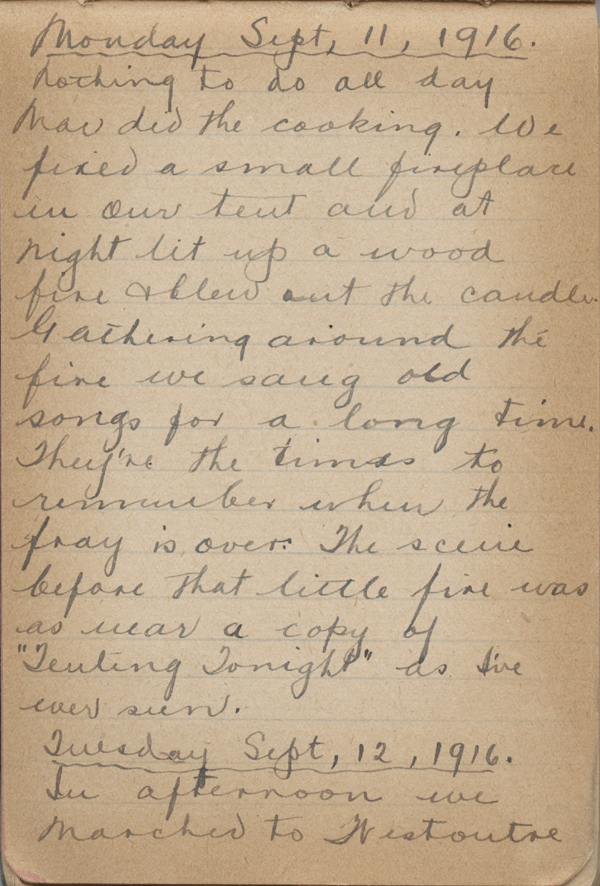 Monday Sept, 11, 1916.
Nothing to do all day
Mac did the cooking. We
fixed a small fireplace
in our tent and at
night lit up a wood
fire & blew out the candle.
Gathering around the
fire we sang old
songs for a long time.
They're the times to
remember when the
fray is over. The scene
before that little fire was
as near a copy of
"Tenting Tonight" as I've
ever seen.
Tuesday Sept, 12, 1916.
In afternoon we
marched to Westoutre